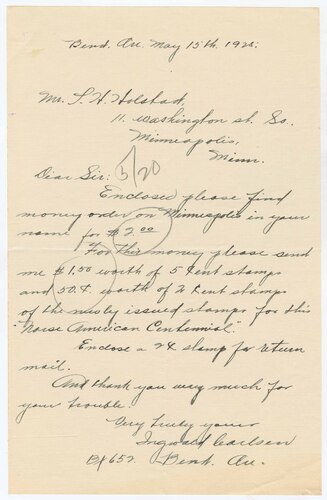 Bend. Or. May 15th. 1925.
Mr. S. H. Holstad,
11. Washington st. So.
Minneapolis,
Minn.
Dear Sir: 5/20
Enclosed please find
money order on Minneapolis in your
name for $2.00
For this money please send
me $1.50 worth of 5 Cent stamps
and 50.¢ worth of 2 Cent stamps
of the newly issued stamps for this
"Norse American Centennial".
Enclose a 2¢ stamp for return
mail.
And thank you very much for
your trouble.
Very truly yours
Ingvard Carlsen
Bx 652. Bend. Or.